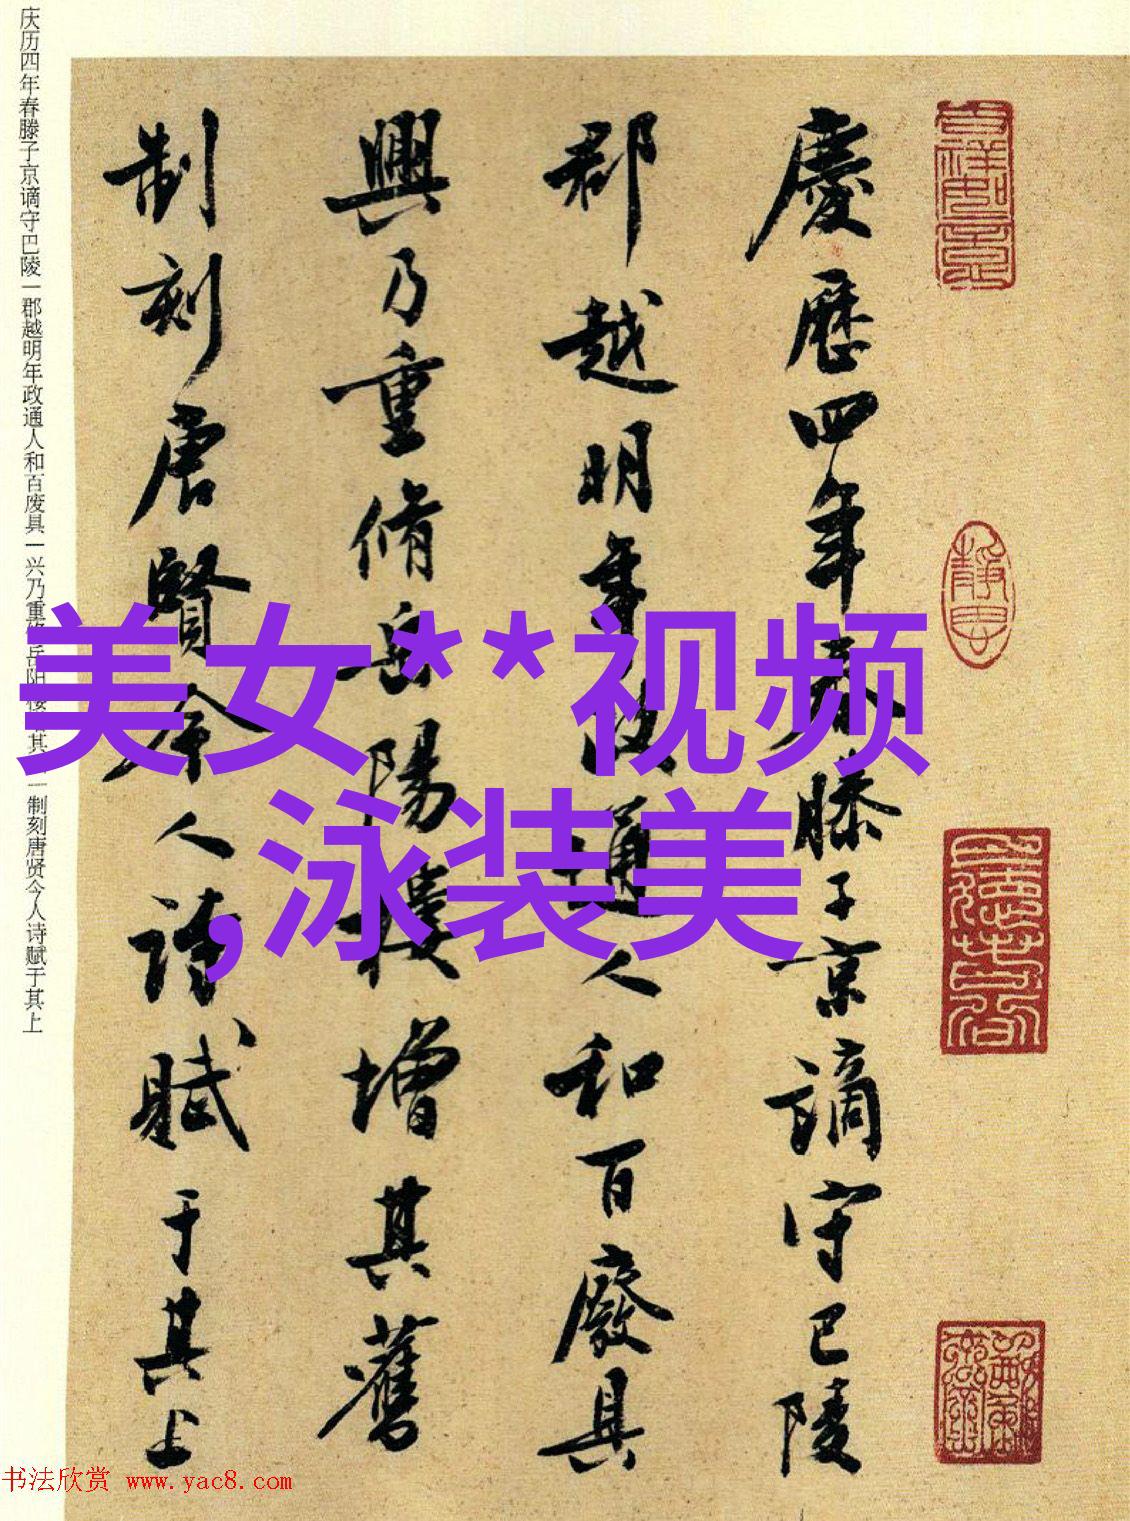 庆历四年春滕子京谪守巴陵一郡越明年政通人和百废具一兴乃重修岳阳楼 其 一制刻唐贤今人诗赋于其上
慶歷四年春滕子京謫守巴陵
郡越明年政通人和百廢具
興乃重脩岳陽樓增其舊
制刻唐賢今人詩賦于其上
美女**视频
,泳装美
书法欣赏 www.yac8.com